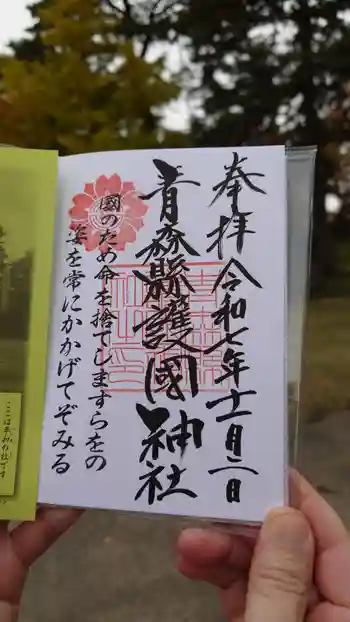 奉拝
令和七年十一月二日
青森縣護國神社
國のため命を捨てしますらをの
姿を常にかかげてぞみる
ここは平和の杜です